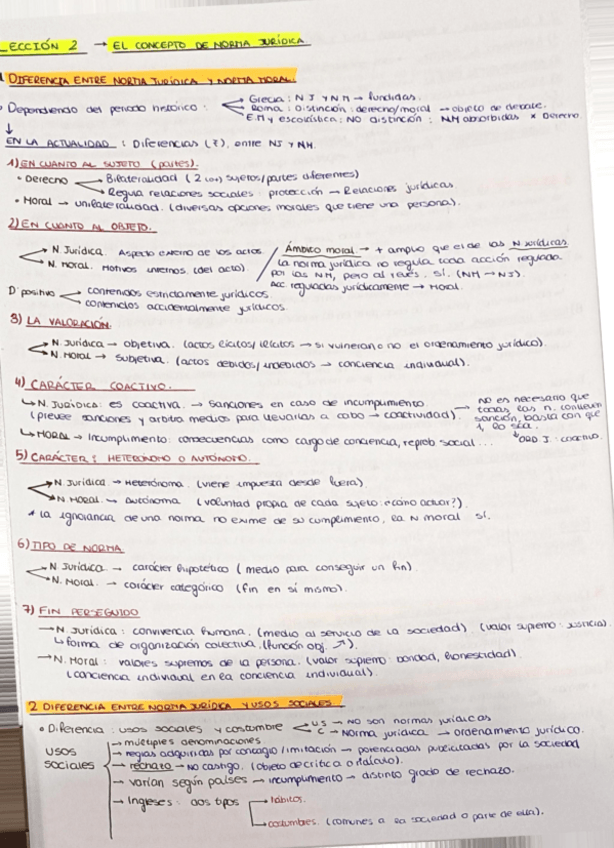 LECCIÓN 2 → EL CONCEPTO DE NORMA JURÍDICA
DIFERENCIA ENTRE NORMA JURÍDICA Y NORMA MORAL.
Dependiendo del periodo histórico: Grecia: NJ Y NM → fundidas.
Roma: Distinción: derecho/moral → objeto de debate.
E.M y escolástica: NO distinción: NM absorbidas x Derecho
↓
EN LA ACTUALIDAD: Diferencias (7), entre NJ y NM.
1) EN CUANTO AL SUJETO (partes).
• Derecho Bilateralidad (2 sujetos/partes diferentes)
Regula relaciones sociales: protección → Relaciones jurídicas.
• Moral → unilateralidad. (diversas opciones morales que tiene una persona).
2) EN CUANTO AL OBJETO.
N. Jurídica. Aspecto externo de los actos
N. Moral. Motivos internos (del acto).
Ámbito moral → + amplio que el de las N jurídicas.
La norma jurídica no regula toda acción regulada
por las NM, pero al revés, sí. (NM → NJ).
Acc reguladas jurídicamente → Moral.
D. positivo contenidos estrictamente jurídicos.
contenidos accidentalmente jurídicos
3) LA VALORACIÓN.
N. Jurídica → objetiva. (actos lícitos/ilícitos → si vulneran o no el ordenamiento jurídico).
N Moral → subjetiva. (actos debidos/indebidos → conciencia individual).
4) CARÁCTER COACTIVO.
↳ N. JURÍDICA: es coactiva. → sanciones en caso de incumplimiento.
(prevee sanciones y arbitra medios para llevarlas a cabo → coactividad).
→ no es necesario que
todas las n. conlleven
sanción, basta con que
1 lo sea.
↓ ORD J: coactivo.
↳ MORAL → Incumplimiento: consecuencias como cargo de conciencia, reprob social...
5) CARÁCTER: HETERÓNOMO O AUTÓNOMO.
N. Jurídica → Heterónoma. (viene impuesta desde fuera).
N. MORAL → autónoma (voluntad propia de cada sujeto: ¿cómo actuar?).
* La ignorancia de una norma no exime de su cumplimiento, la N moral sí.
6) TIPO DE NORMA
N Jurídica → carácter hipotético (medio para conseguir un fin).
N. Moral → carácter categórico (fin en sí mismo).
7) FIN PERSEGUIDO
→ N. Jurídica: convivencia humana. (medio al servicio de la sociedad). (valor supremo: justicia).
↳ forma de organización colectiva. (función obj. ↗).
→ N. Moral: valores supremos de la persona. (valor supremo: bondad, honestidad).
(conciencia individual en la conciencia individual).
2 DIFERENCIA ENTRE NORMA JURÍDICA Y USOS SOCIALES
• Diferencia: usos sociales y costumbre US → no son normas jurídicas
C → Norma jurídica → ordenamiento jurídico.
USOS SOCIALES
→ múltiples denominaciones
→ reglas adquiridas por contagio/imitación → potenciadas publicitadas por la sociedad
→ rechazo → No castigo. (objeto de crítica o rechazo).
→ varían según países → incumplimiento → distinto grado de rechazo.
→ Ingleses: dos tipos → hábitos.
→ costumbres. (comunes a la sociedad o parte de ella).